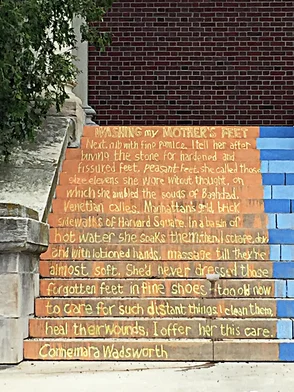 WASHING my MOTHER'S FEET
Next, rub with fine pumice. I tell her after
buying the stone for hardened and
fissured feet, peasant feet, she called those
size elevens she wore without thought, on
which she ambled the souqs of Baghdad,
Venetian calles, Manhattan's grid, brick
sidewalks of Harvard Square. In a basin of
hot water she soaks them, then I scrape, dry
and with lotioned hands, massage till they're
almost soft. She'd never dressed those
forgotten feet in fine shoes, too old now
to care for such distant things. I clean them,
heal their wounds, I offer her this care.
Connemara Wadsworth